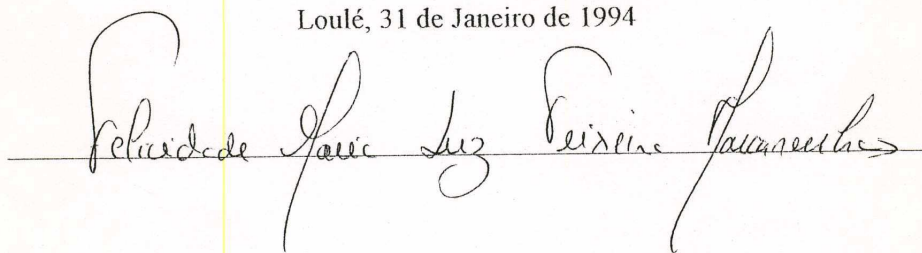 Loulé, 31 de Janeiro de 1994
Felicidade Maria Luz Teixeira